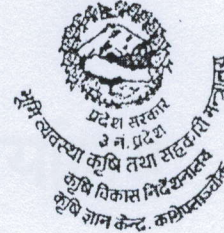 प्रदेश सरकार
३ नं. प्रदेश
भूमि व्यवस्था कृषि तथा सहकारी मन्त्रालय
कृषि विकास निर्देशनालय
कृषि ज्ञान केन्द्र,